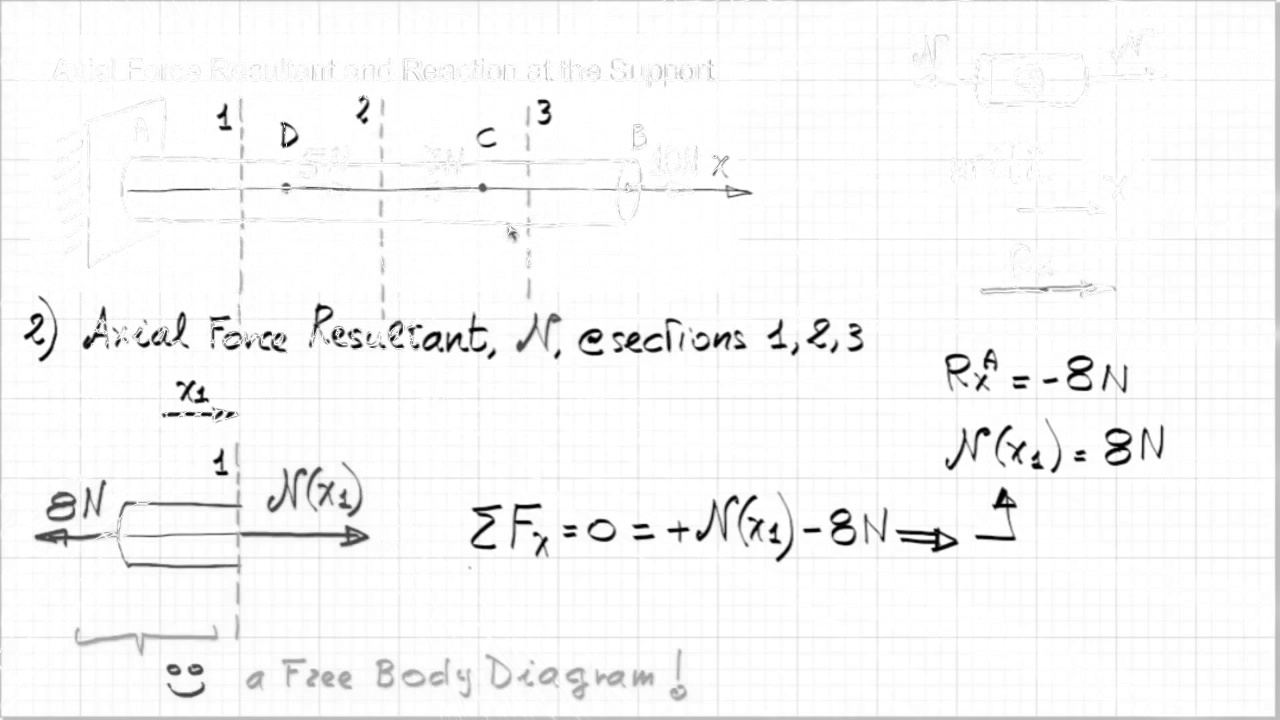 Axial Force Resultant and Reaction at the Support
N N
1 2 3
A D C B
5N 3N 10N x
x
2) Axial Force Resultant, N, @ sections 1, 2, 3
x₁
Rₓᴬ = -8N
N(x₁) = 8N
1
8N N(x₁)
ΣFₓ = 0 = +N(x₁) - 8N ⇒
a Free Body Diagram!